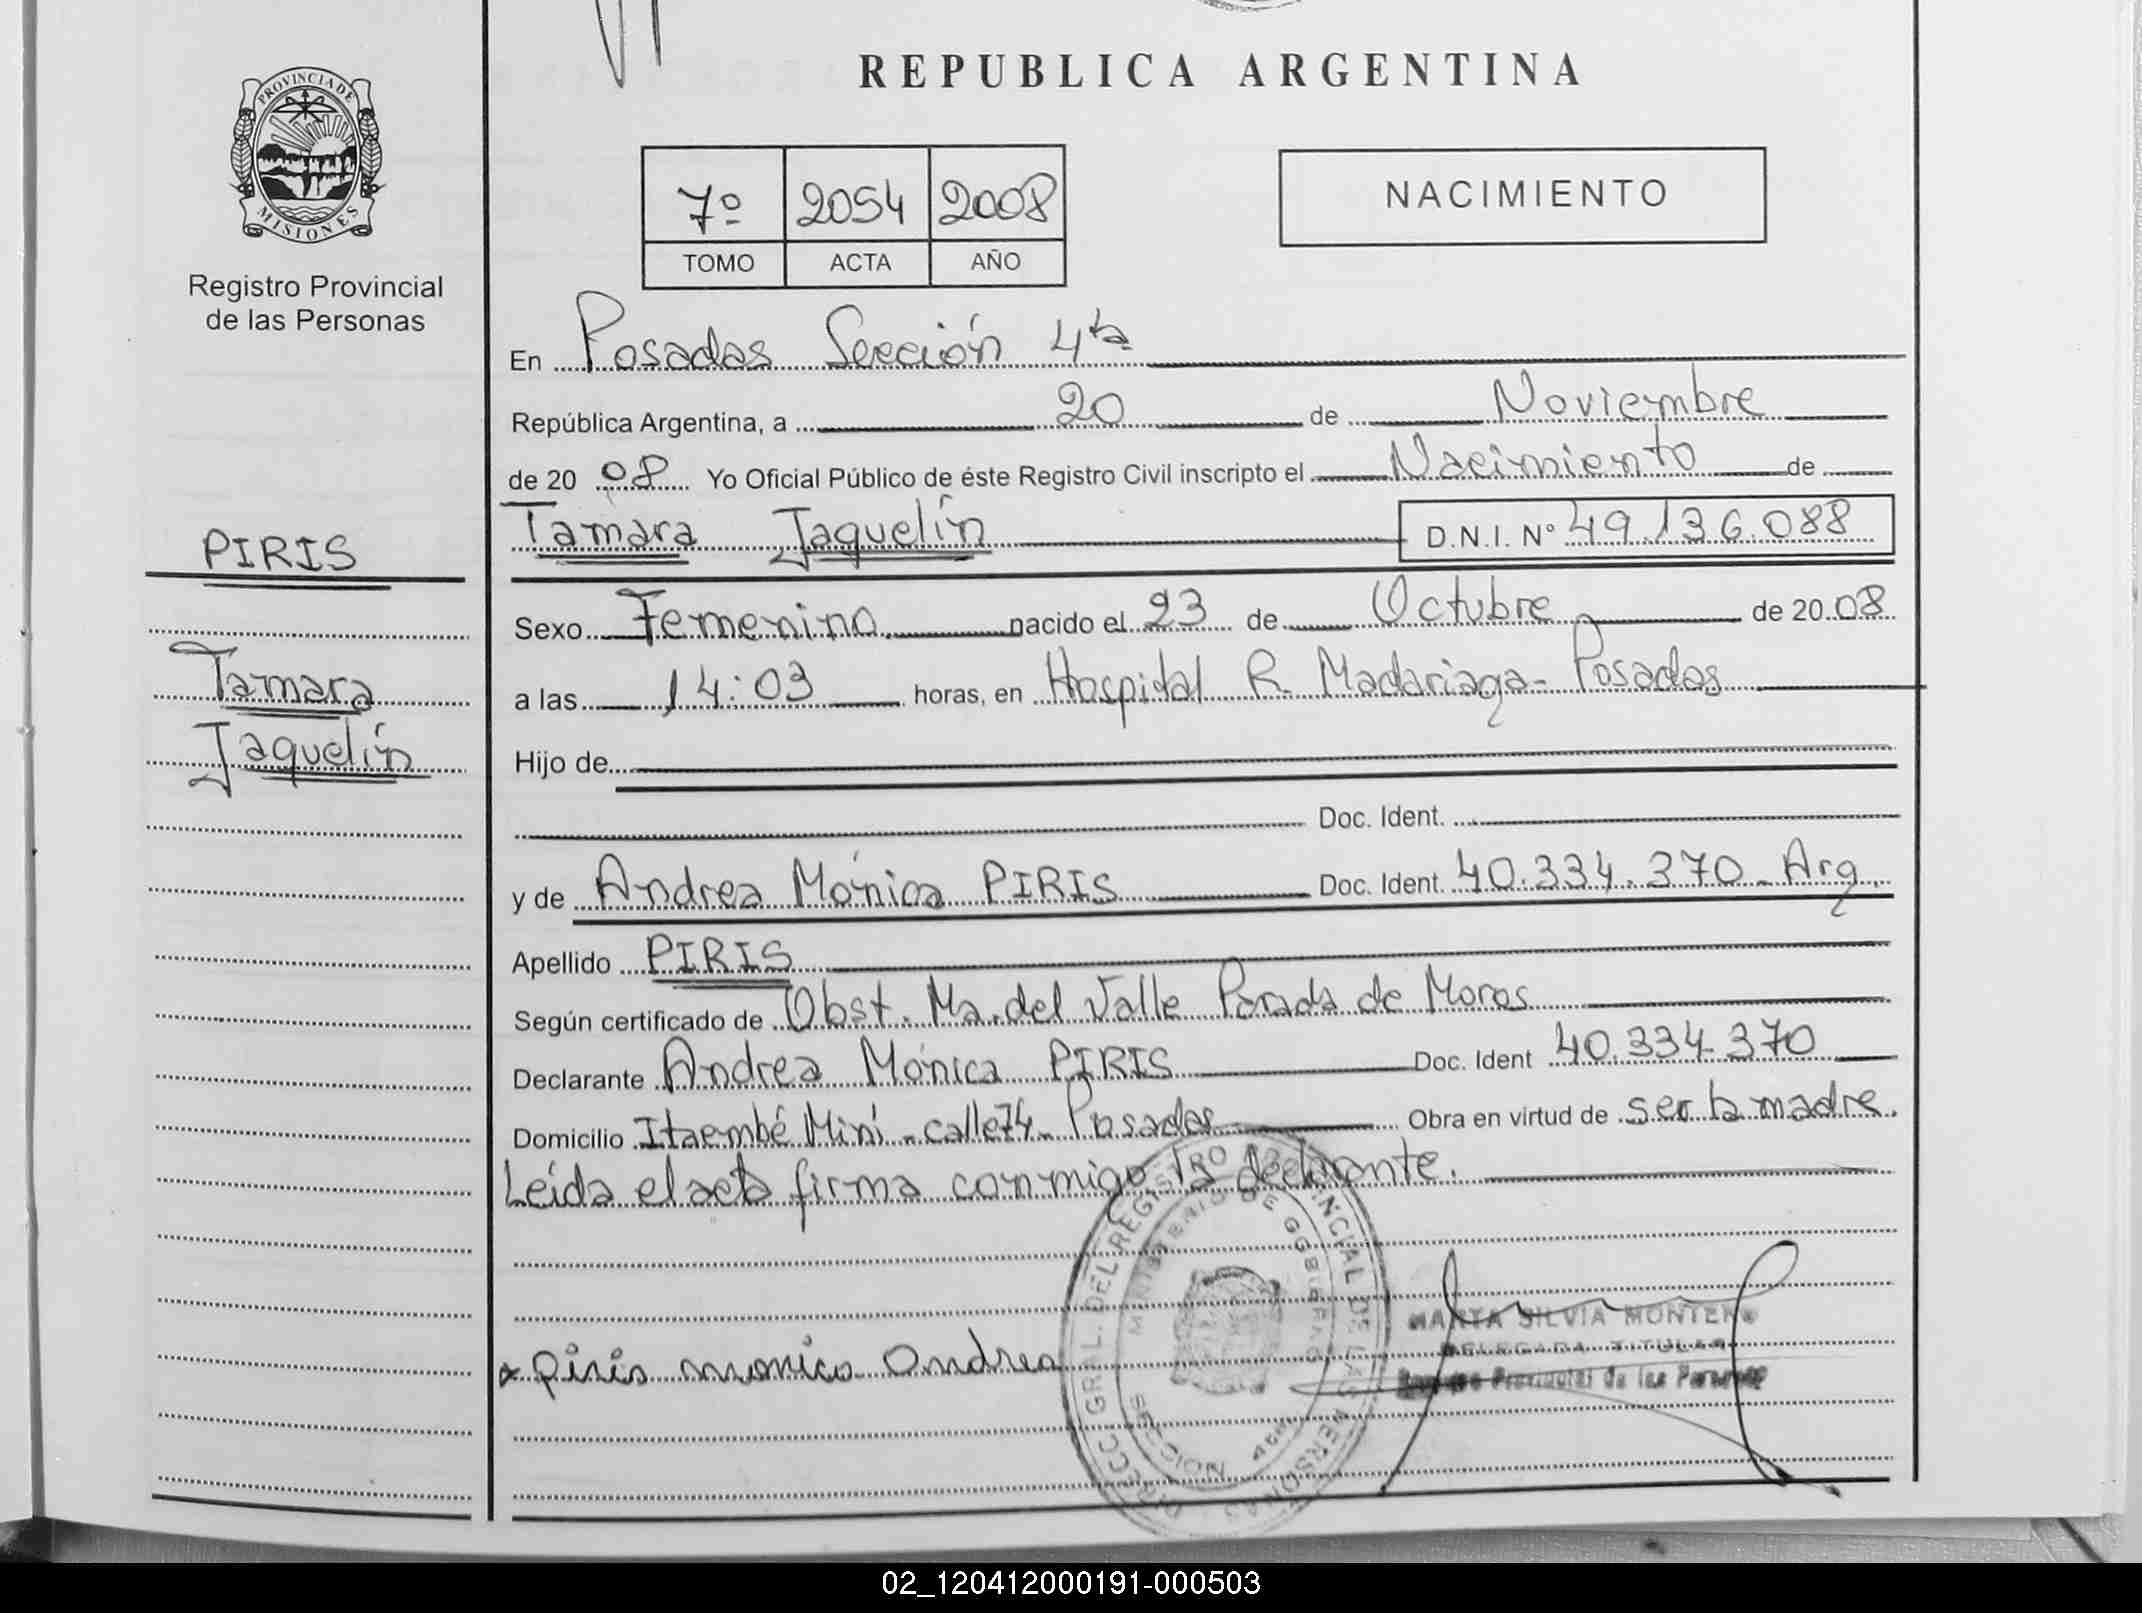 REPUBLICA ARGENTINA
PROVINCIA DE
MISIONES
Registro Provincial
de las Personas
7º 2054 2008
TOMO ACTA AÑO
NACIMIENTO
En Posadas Sección 4ta
República Argentina, a 20 de Noviembre
de 20 08 Yo Oficial Público de éste Registro Civil inscripto el Nacimiento de
Tamara Jaquelín D.N.I. Nº 49.136.088
PIRIS
Tamara
Jaquelín
Sexo Femenino nacido el 23 de Octubre de 20 08
a las 14:03 horas, en Hospital R. Madariaga - Posadas
Hijo de
Doc. Ident.
y de Andrea Mónica PIRIS Doc. Ident. 40.334.370 - Arg.
Apellido PIRIS
Según certificado de Obst. Ma. del Valle Parada de Moras
Declarante Andrea Mónica PIRIS Doc. Ident 40.334.370
Domicilio Itaembé Miní - calle 74 - Posadas Obra en virtud de ser la madre.
Leída el acta firma conmigo la declarante.
DIRECC. GRAL. DEL REGISTRO PROVINCIAL DE LAS PERSONAS
MINISTERIO DE GOBIERNO
SECCION 4ta
MARTA SILVIA MONTERO
DELEGADA TITULAR
Registro Provincial de las Personas
x Piris monica Andrea
02_120412000191-000503